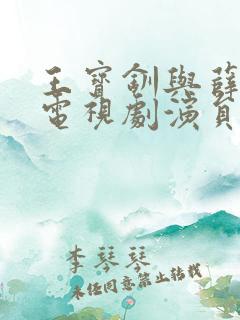 王寶釧與薛
電視劇演員
李琴琴
未經同意禁止轉載